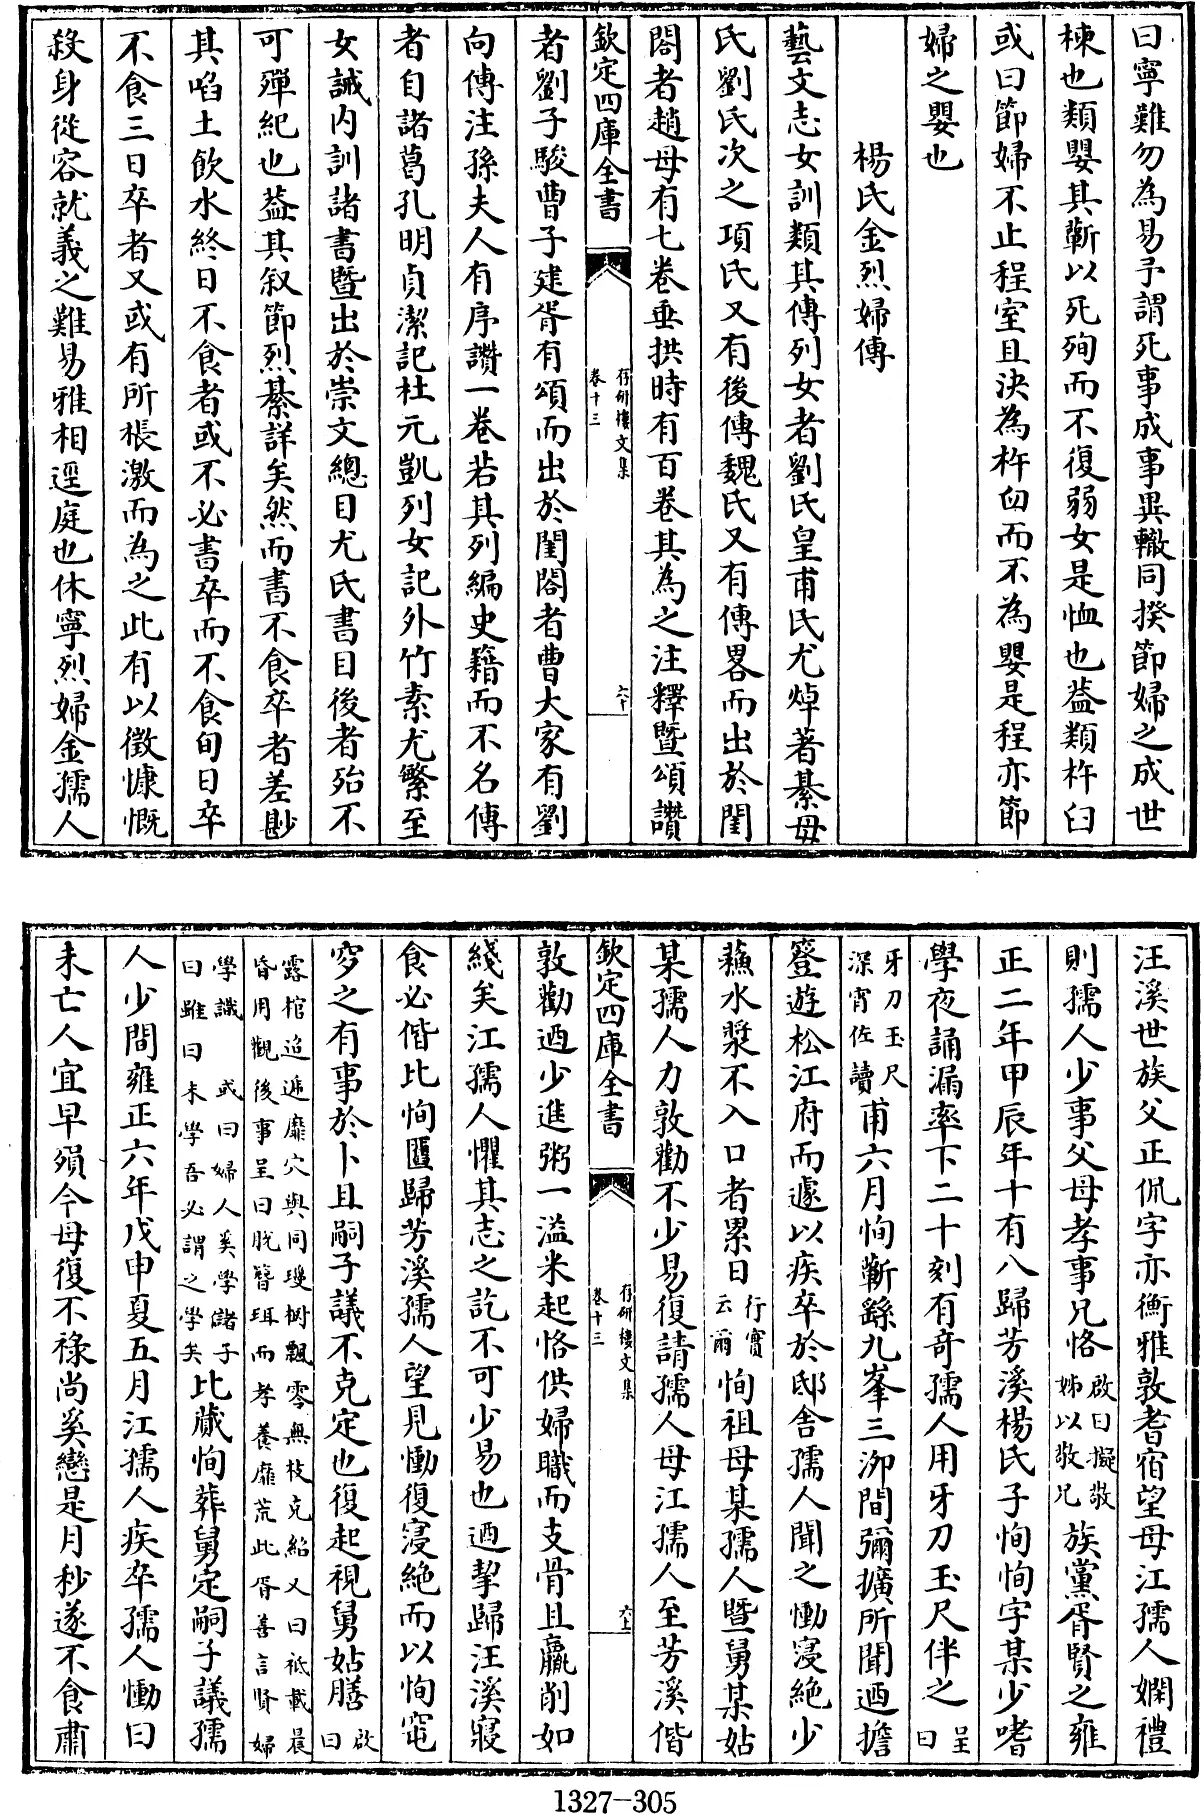 曰寧難勿為易予謂死事成事異轍同揆節婦之成世
楝也類嬰其蘄以死殉而不復弱女是恤也葢類杵臼
或曰節婦不止程室且決為杵臼而不為嬰是程亦節
婦之嬰也
楊氏金烈婦傳
藝文志女訓類其傳列女者劉氏皇甫氏尤焯著綦毋
氏劉氏次之項氏又有後傳魏氏又有傳畧而出於閨
閤者趙母有七卷垂拱時有百卷其為之注釋暨頌讚
欽定四庫全書
存研樓文集
卷十三
六十
者劉子駿曹子建胥有頌而出於閨閤者曹大家有劉
向傳注孫夫人有序讚一卷若其列編史籍而不名傳
者自諸葛孔明貞潔記杜元凱列女記外竹素尤繁至
女誡內訓諸書暨出於崇文總目尤氏書目後者殆不
可殫紀也葢其叙節烈綦詳矣然而書不食卒者差尠
其啗土飲水終日不食者或不必書卒而不食旬日卒
不食三日卒者又或有所棖激而為之此有以徵慷慨
殺身從容就義之難易雅相逕庭也休寧烈婦金孺人
汪溪世族父正侃字亦衡雅敦耆宿望母江孺人嫻禮
則孺人少事父母孝事兄恪啟曰擬敬姊以敬兄族黨胥賢之雍
正二年甲辰年十有八歸芳溪楊氏子恂恂字某少嗜
學夜誦漏率下二十刻有奇孺人用牙刀玉尺伴之呈曰
牙刀玉尺深宵佐讀甫六月恂蘄繇九峯三泖間彌擴所聞迺擔
簦遊松江府而遽以疾卒於邸舍孺人聞之慟寖絶少
蘓水漿不入口者累日行實云爾恂祖母某孺人暨舅某姑
某孺人力敦勸不少易復請孺人母江孺人至芳溪偕
欽定四庫全書
存研樓文集
卷十三
六十一
敦勸迺少進粥一溢米起恪供婦職而支骨且羸削如
綫矣江孺人懼其志之訖不可少易也迺挈歸汪溪寢
食必偕比恂匶歸芳溪孺人望見慟復寖絶而以恂窀
穸之有事於卜且嗣子議不克定也復起視舅姑膳啟曰
露棺迨遞靡穴與同瓊樹飄零無枝克紹又曰祗載晨昏用觀後事呈曰脫簪珥而孝養靡荒此胥善言賢婦
學識或曰婦人奚學諸子曰雖曰未學吾必謂之學矣比歲恂葬舅定嗣子議孺
人少間雍正六年戊申夏五月江孺人疾卒孺人慟曰
未亡人宜早殞今母復不祿尚奚戀是月秒遂不食肅
1327-305